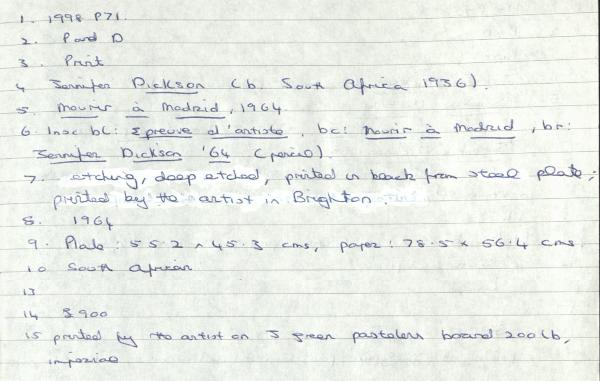 1. 1998 P71.
2. P and D
3. Print
4 Jennifer Dickson (b. South Africa 1936).
5. Mourir à Madrid, 1964
6. Insc bl: Epreuve d'artiste, bc: Mourir à Madrid, br:
Jennifer Dickson '64 (pencil).
7. etching, deep etched, printed in black from steel plate;
printed by the artist in Brighton.
8. 1964
9. Plate: 55.2 x 45.3 cms, paper: 78.5 x 56.4 cms
10 South African
13
14 $900
15 printed by the artist on J green pastelers board 200 lb,
imperial